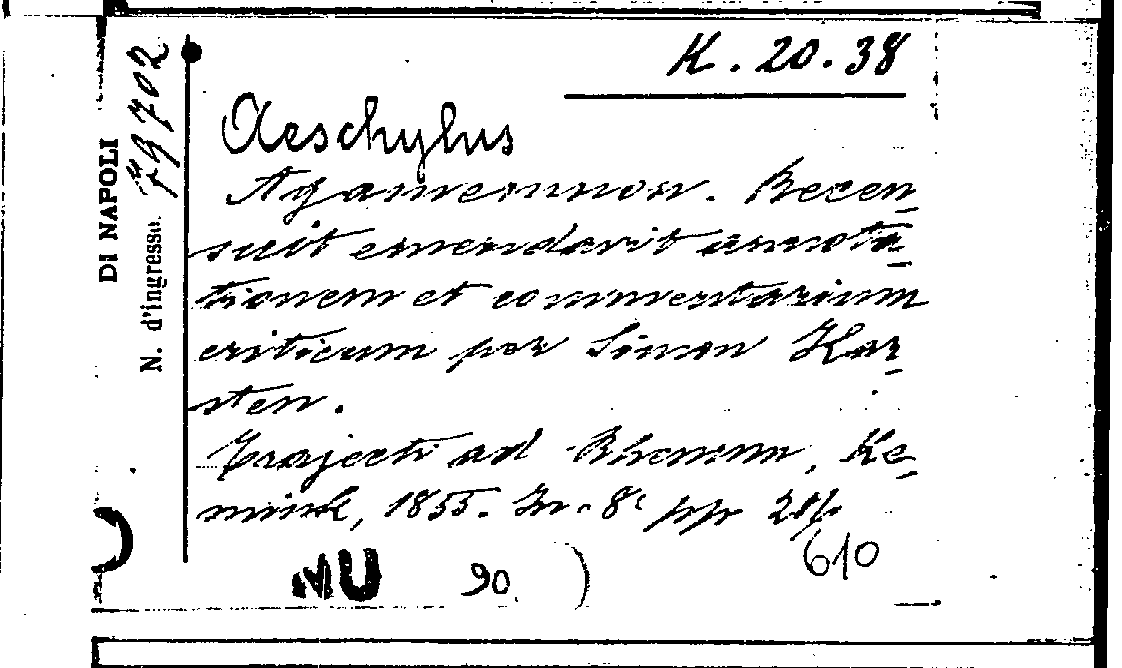 K. 20. 38
DI NAPOLI
N. d'ingresso. 79702
Aeschylus
Agamemnon. Recen-
suit emendavit annota-
tionem et commentarium
criticum por Simon Kar-
sten.
Trajecti ad Rhenum, Ke-
mink, 1855. In-8° pp
MU 90. ) 610